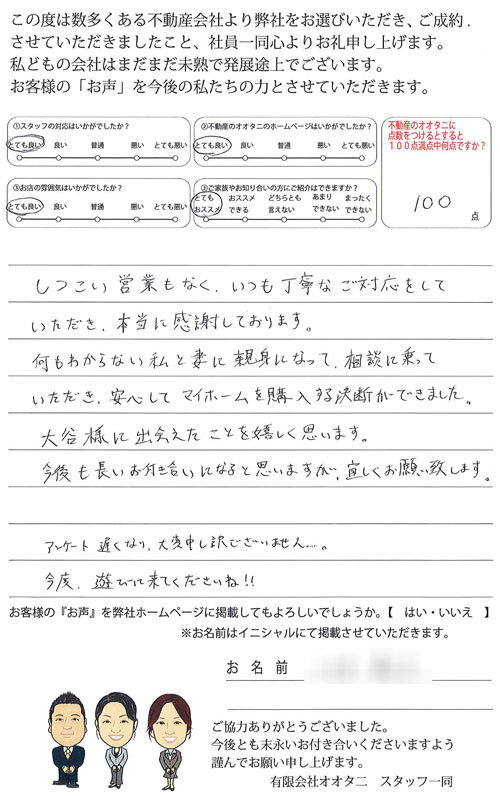 この度は数多くある不動産会社より弊社をお選びいただき、ご成約
させていただきましたこと、社員一同心よりお礼申し上げます。
私どもの会社はまだまだ未熟で発展途上でございます。
お客様の「お声」を今後の私たちの力とさせていただきます。
①スタッフの対応はいかがでしたか？
とても良い 良い 普通 悪い とても悪い
②不動産のオオタニのホームページはいかがでしたか？
とても良い 良い 普通 悪い とても悪い
③お店の雰囲気はいかがでしたか？
とても良い 良い 普通 悪い とても悪い
③ご家族やお知り合いの方にご紹介はできますか？
とても オススメ どちらとも あまり まったく
おススメ できる 言えない できない できない
不動産のオオタニに
点数をつけるとすると
１００点満点中何点ですか？
100
点
しつこい営業もなく、いつも丁寧なご対応をして
いただき、本当に感謝しております。
何もわからない私と妻に親身になって、相談に乗って
いただき、安心してマイホームを購入する決断ができました。
大谷様に出会えたことを嬉しく思います。
今後も長いお付き合いになると思いますが、宜しくお願い致します。
アンケート遅くなり、大変申し訳ございません…。
今度、遊びに来てくださいね!!
お客様の『お声』を弊社ホームページに掲載してもよろしいでしょうか。【 はい・いいえ 】
※お名前はイニシャルにて掲載させていただきます。
お 名 前
ご協力ありがとうございました。
今後とも末永いお付き合いくださいますよう
謹んでお願い申し上げます。
有限会社オオタニ スタッフ一同